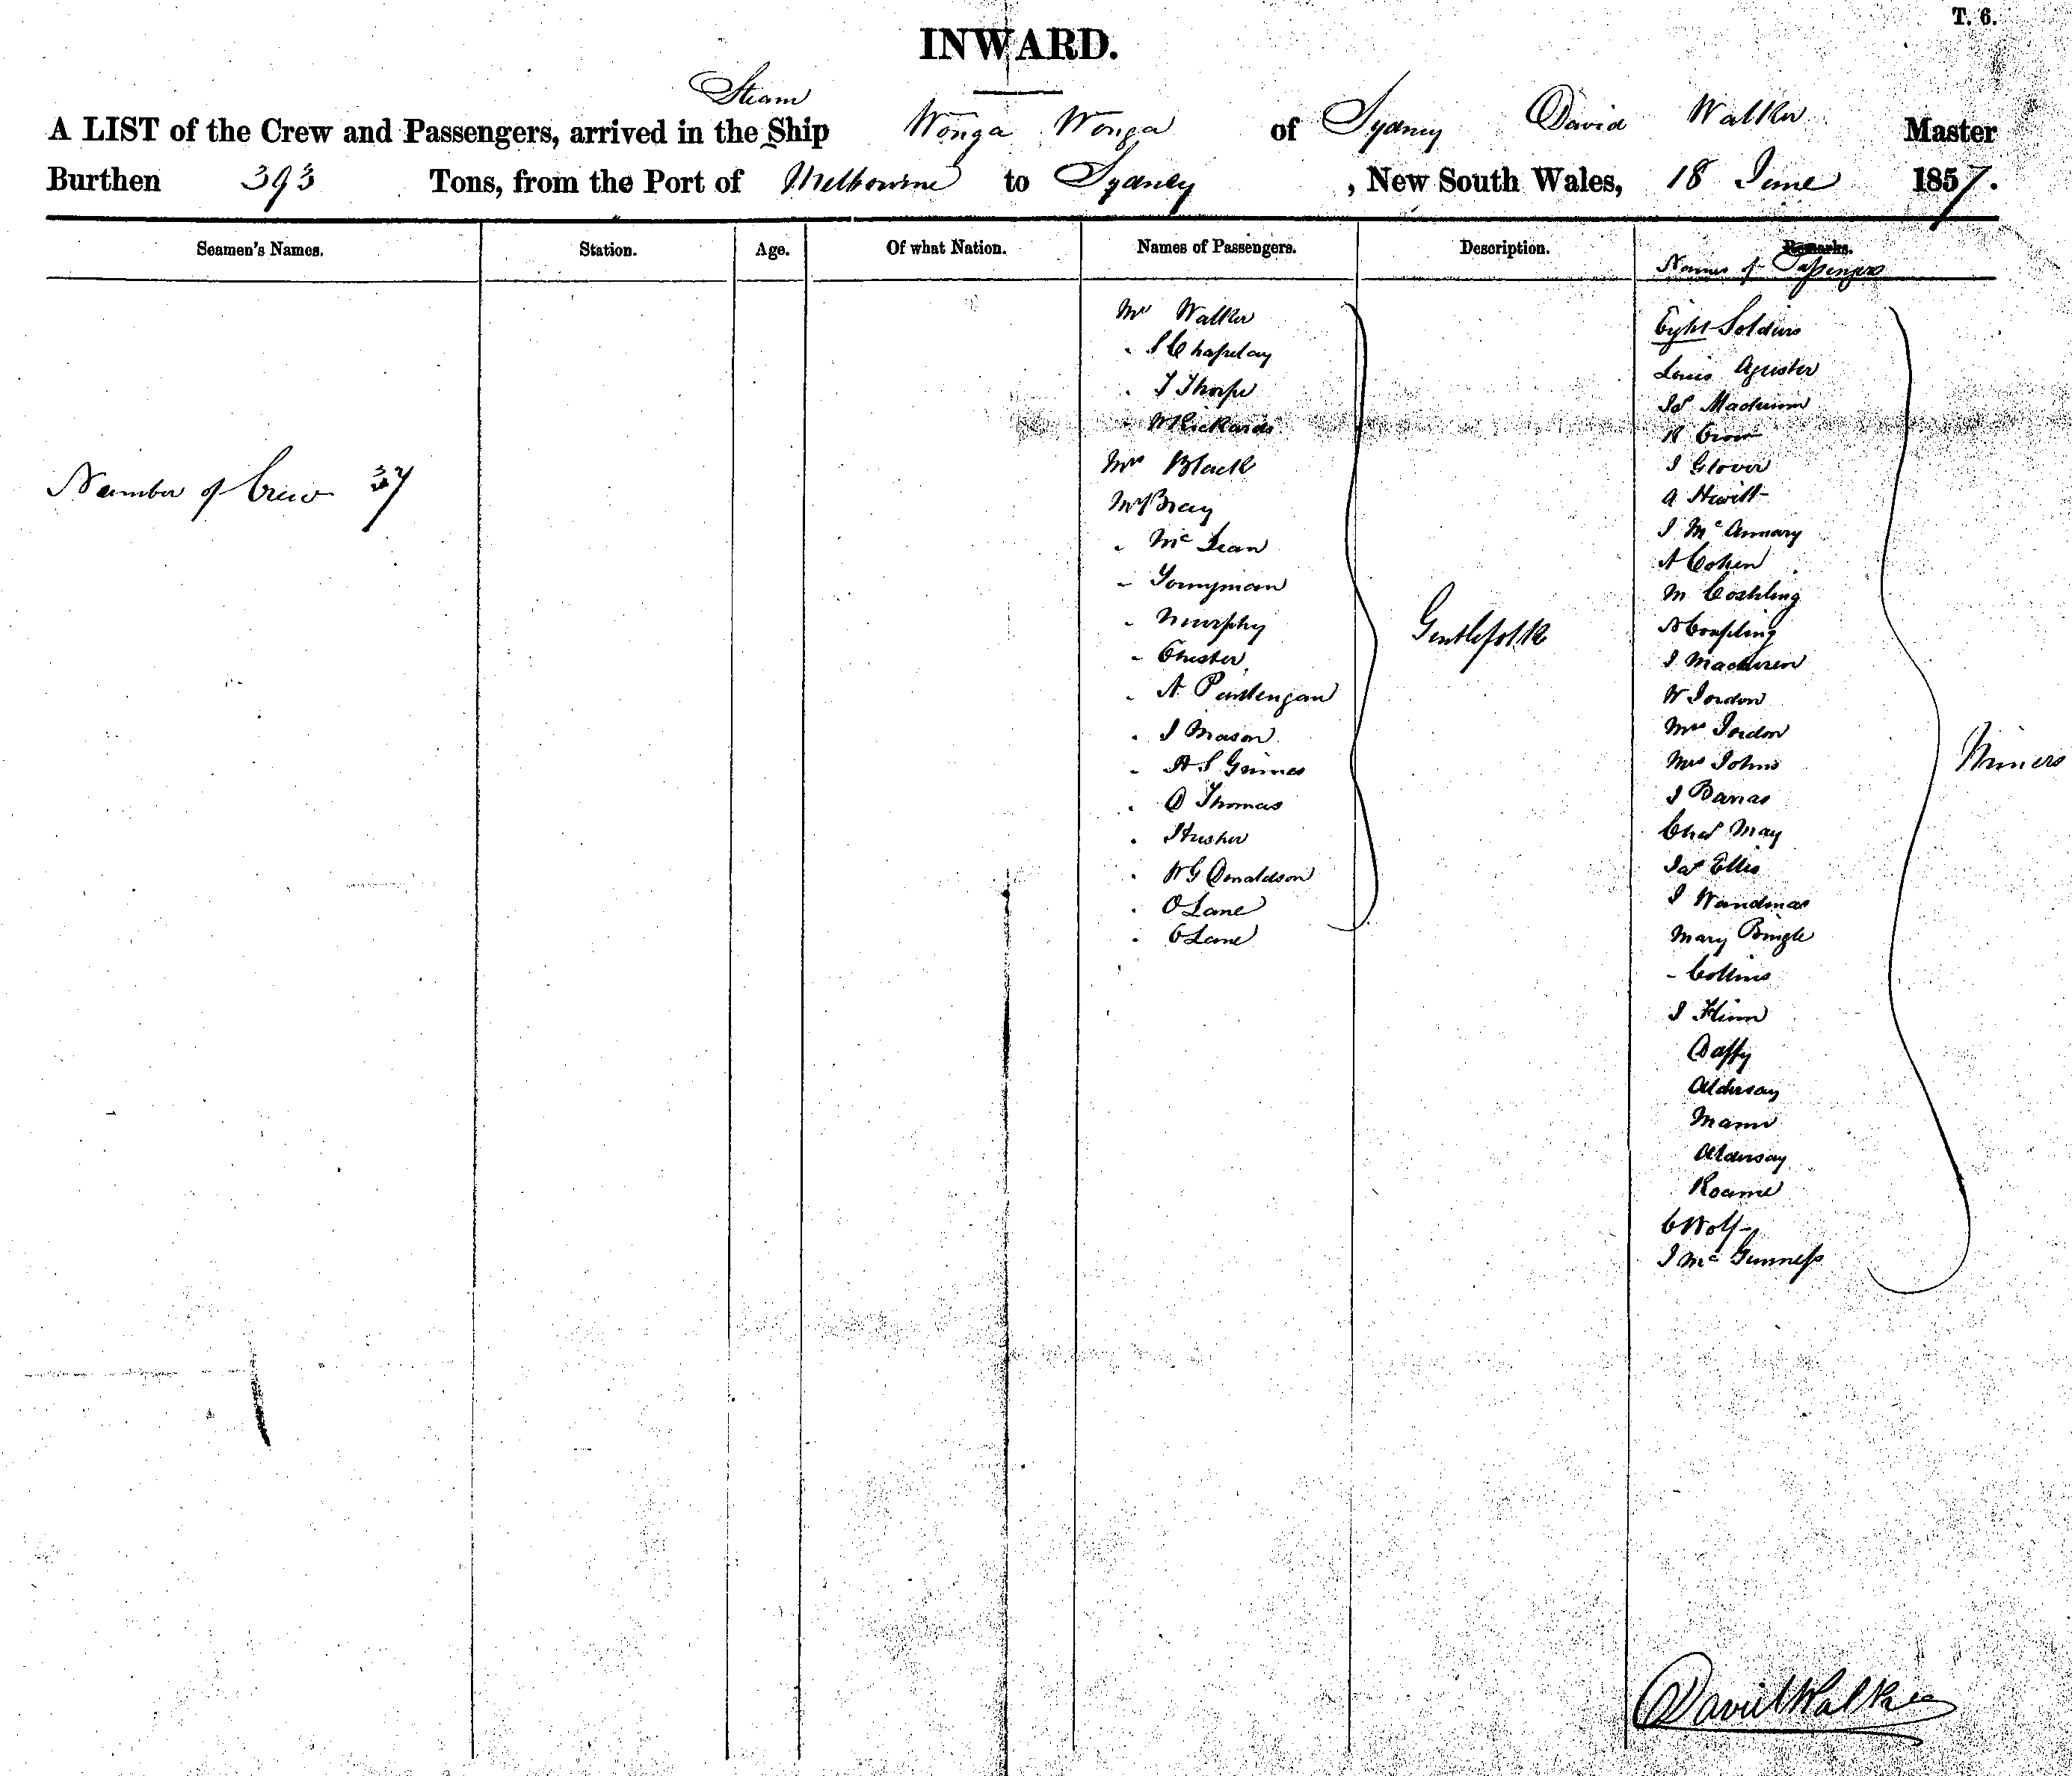 T. 6.
INWARD.
Steam
A LIST of the Crew and Passengers, arrived in the Ship Wonga Wonga of Sydney David Walker Master
Burthen 393 Tons, from the Port of Melbourne to Sydney , New South Wales, 18 June 1857.
Seamen's Names. Station. Age. Of what Nation. Names of Passengers. Description. Remarks.
Names of Passengers
Number of Crew 37
Mrs Walker
" S Chapelay
" T Thorpe
" W Rickards
Mrs Black
Mr Bray
" McLean
" Youngman
" Murphy
" Chester
" A
" J Mason
" H S Grimes
" D Thomas
" Husher
" W G Donaldson
" O Lane
" C Lane
Gentlefolk
Eight Soldiers
Louis
Jas
R Crow
J Glover
A Hewitt
J Mc Annary
A Cohen
M Coshling
J
W Jordon
Mrs Jordon
Mrs Johns
J Barras
Chas May
Jas Ellis
J
Mary Pringle
- Collins
J Flinn
Daffy
Aldersay
Mann
Aldersay
Roame
C Wolf
J Mc Gunness
Miners
David Walker